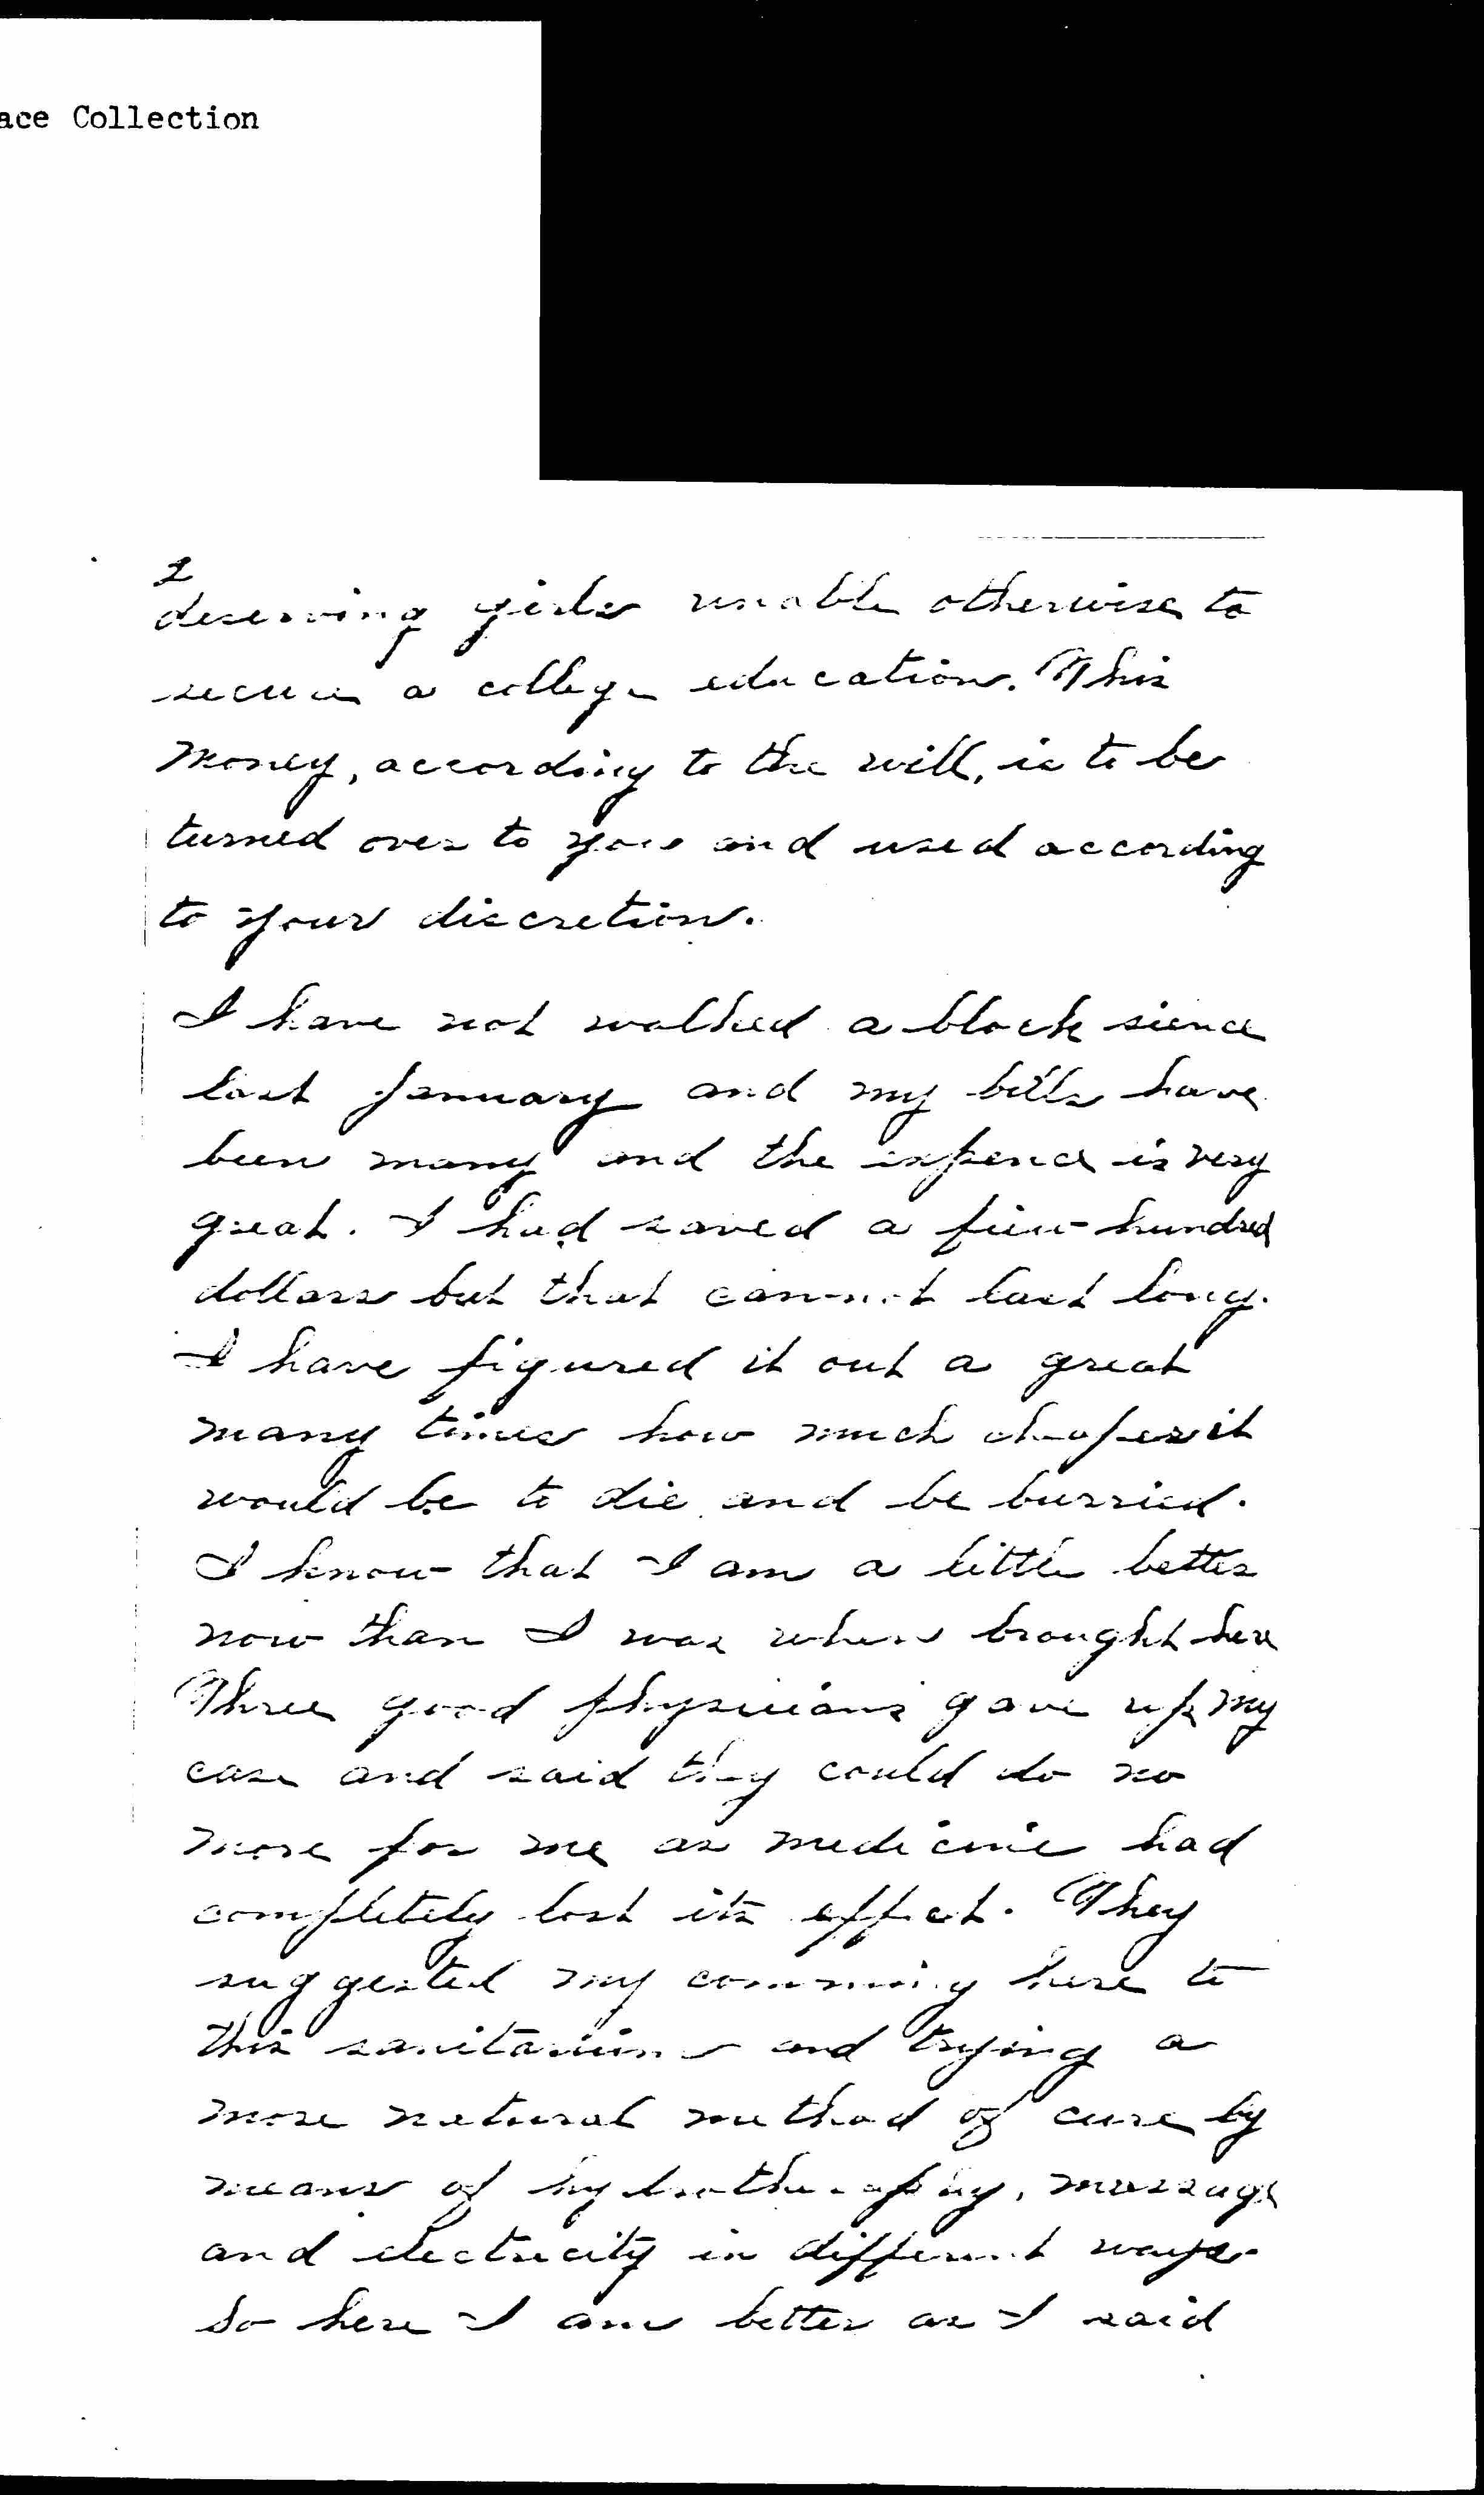 ace Collection
2
deserving girls unable otherwise to
secure a college education. This
money, according to the will, is to be
turned over to you and used according
to your discretion.
I have not walked a block sience
last January and my bills have
been many and the expence is very
great. I had saved a few hundred
dollars but that cannot last long.
I have figured it out a great
many times how much cheaper it
would be to die and be burried.
I know that I am a little better
now than I was when brought here
Three good physicians gave up my
case and said they could do no
more for me as medicine had
completely lost its effect. They
suggested my comming here to
this sanitarium and trying a
more natural method of cure by
means of hydrotheraphy, massage
and electricity in different ways.
So here I am better as I said